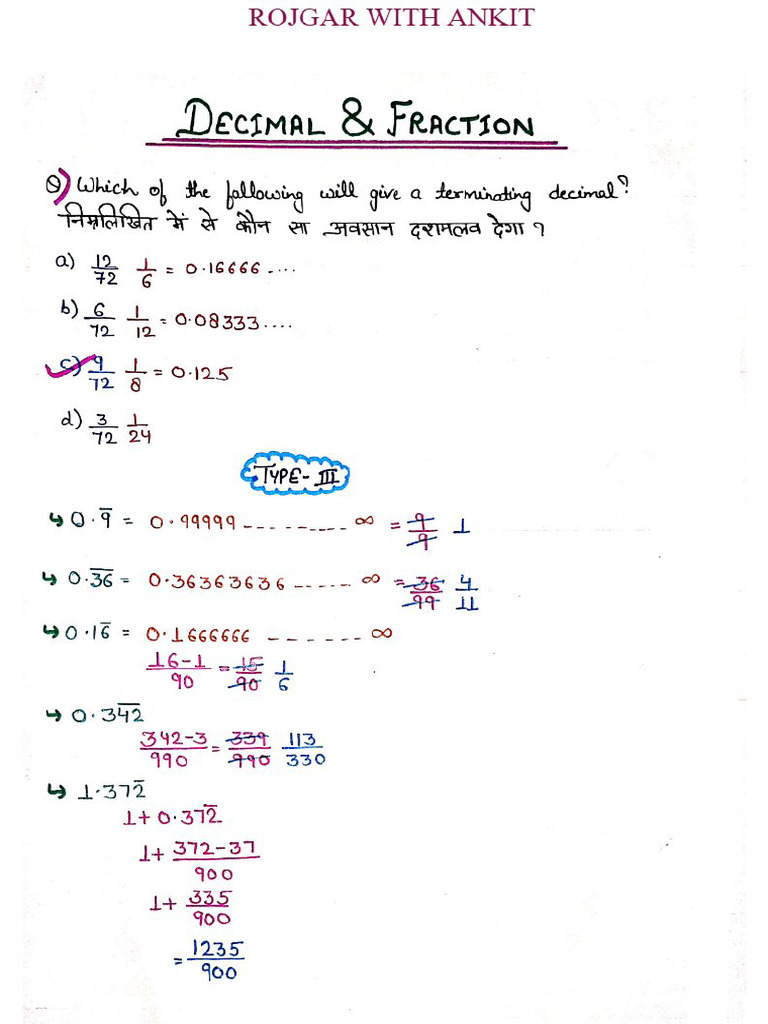 ROJGAR WITH ANKIT
DECIMAL & FRACTION
Q) Which of the following will give a terminating decimal?
निम्नलिखित में से कौन सा अवसान दशमलव देगा ?
a) 12/72 1/6 = 0.16666....
b) 6/72 1/12 = 0.08333....
c) 9/72 1/8 = 0.125
d) 3/72 1/24
TYPE-III
↳ 0.9̅ = 0.99999 --------- ∞ = 9/9 1
↳ 0.3̅6̅ = 0.36363636 ------ ∞ = 36/99 4/11
↳ 0.16̅ = 0.1666666 ------- ∞
16-1/90 = 15/90 1/6
↳ 0.34̅2̅
342-3/990 = 339/990 113/330
↳ 1.372̅
1+0.372̅
1+ 372-37/900
1+ 335/900
= 1235/900